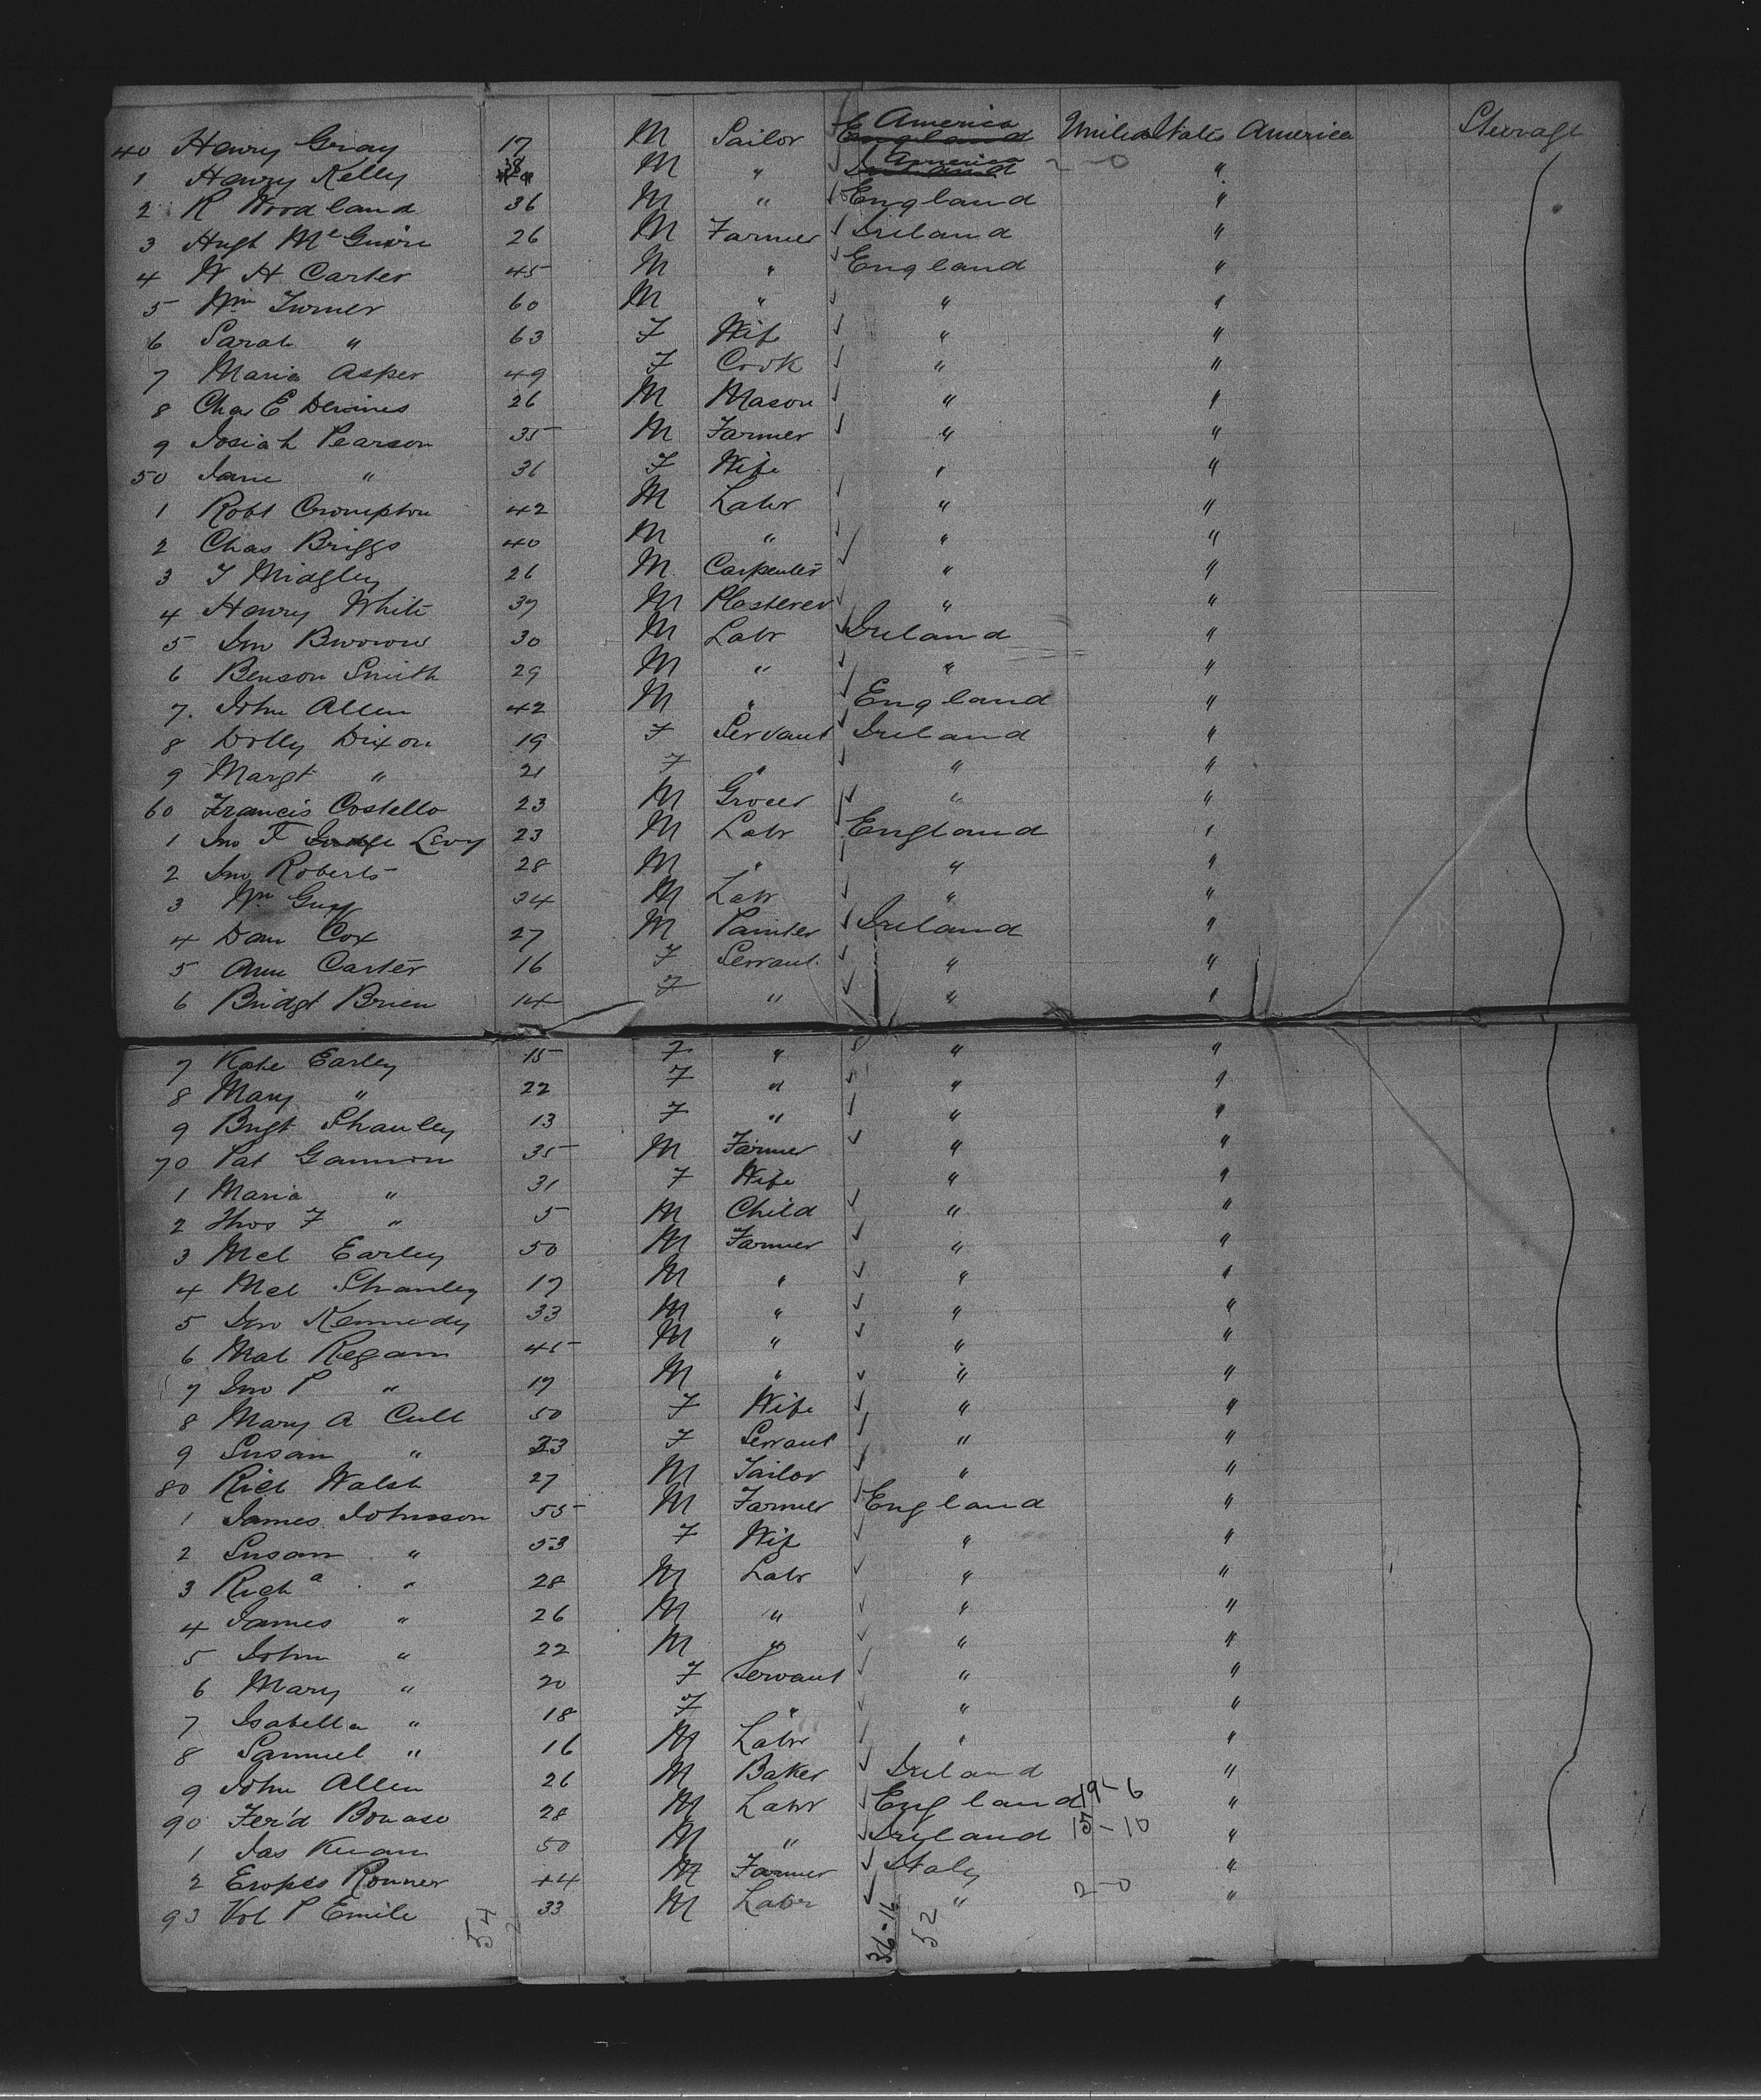 40 Henry Gray 17 M Sailor America England United States America Steerage
1 Henry Kelly 38 M " America Ireland 2-0 "
2 R Woodland 36 M " England "
3 Hugh McGuire 26 M Farmer Ireland "
4 W H Carter 45 M " England "
5 Wm Turner 60 M " " "
6 Sarah " 63 F Wife " "
7 Maria Asper 49 F Cook " "
8 Chas E 26 M Mason " "
9 Josiah Pearson 35 M Farmer " "
50 Jane " 31 F Wife " "
1 Robt Crompton 42 M Labr " "
2 Chas Briggs 40 M " " "
3 J Midgley 26 M Carpenter " "
4 Henry White 37 M Plasterer " "
5 Jno 30 M Labr Ireland "
6 Benson Smith 29 M " " "
7. John Allen 42 M " England "
8 Dolly Dixon 19 F Servant Ireland "
9 Margt " 21 F " " "
60 Francis Costello 23 M Grocer " "
1 Jno F Levy 23 M Labr England "
2 Jno Roberts 28 M " " "
3 Wm 34 M Labr " "
4 Dan Cox 27 M Painter Ireland "
5 Ann Carter 16 F Servant " "
6 Bridgt Brien 14 F " " "
7 Kate Earley 15 F " " "
8 Mary " 22 F " " "
9 Brigt Shanley 13 F " " "
70 Pat Gannon 35 M Farmer " "
1 Maria " 31 F Wife " "
2 Thos F " 5 M Child " "
3 Mcl Earley 50 M Farmer " "
4 Mcl Shanley 17 M " " "
5 Jno Kennedy 33 M " " "
6 Mat Regan 45 M " " "
7 Jno P " 19 M " " "
8 Mary A Cull 50 F Wife " "
9 Susan " 23 F Servant " "
80 Rich Walsh 27 M Tailor " "
1 James Johnson 55 M Farmer England "
2 Susan " 53 F Wife " "
3 Richd " 28 M Labr " "
4 James " 26 M " " "
5 John " 22 M " " "
6 Mary " 20 F Servant " "
7 Isabella " 18 F " " "
8 Samuel " 16 M Labr " "
9 John Allen 26 M Baker Ireland "
90 Fer'd 28 M Labr England 19-6 "
1 Jas 50 M " Ireland 15-10 "
2 Ronner 44 M Farmer Italy "
93 P Emile 33 M Labr " 2-0 "
54
2
36-16
52